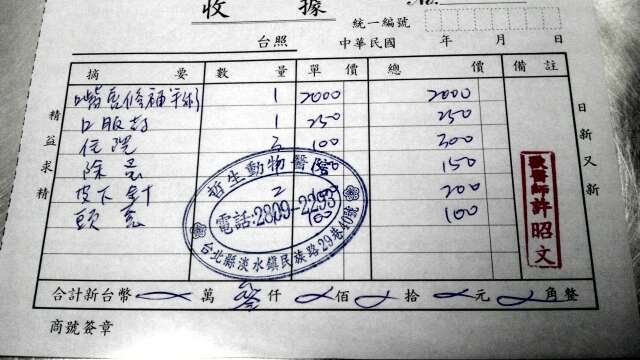 收 據
No.
統一編號
台照 中華民國 年 月 日
摘 要 數 量 單 價 總 價 備 註
嘴唇修補手術 1 2000 2000
口服藥 1 250 250
住院 3 100 300
除蚤 150 150
皮下針 2 200
頭套 100 100
精益求精
日新又新
哲生動物醫院
電話:2809-2293
台北縣淡水鎮民族路29巷40號
獸醫師許昭文
合計新台幣 萬 叁 仟 佰 拾 元 角整
商號簽章